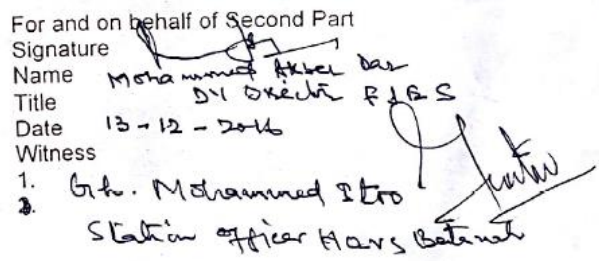 For and on behalf of Second Part
Signature
Name Mohammed Akber Dar
Title Dy Director F & E S
Date 13-12-2016
Witness
1. Gh. Mohammed Itoo
2.
Station Officer Havs